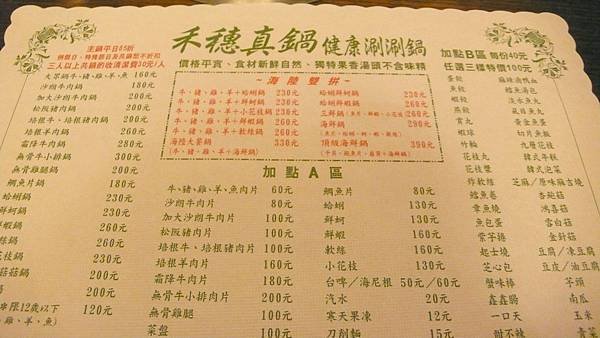 禾穗真鍋 健康涮涮鍋
價格平實、食材新鮮自然、獨特果香湯頭不含味精
主鍋平日85折
三人以上共鍋酌收清潔費30元/人
大眾鍋牛、豬、雞、羊、魚 160元
沙朗牛肉鍋 180元
加大沙朗牛肉鍋 200元
松阪豬肉鍋 200元
培根牛、培根豬肉鍋 200元
培根羊肉鍋 260元
霜降牛肉鍋 280元
無骨牛小排鍋 300元
無骨雞腿鍋 200元
鯛魚片鍋 180元
蛤蜊鍋 230元
鮮蚵鍋 230元
鮮蝦鍋 260元
軟絲鍋 260元
花枝鍋 230元
菇菇鍋 200元
200元
限12歲以下 120元
、雞、羊、魚)
~海陸雙拼~
牛、豬、雞、羊+蛤蜊鍋 230元
牛、豬、雞、羊+鮮蚵鍋 230元
牛、豬、雞、羊+小花枝鍋 230元
牛、豬、雞、羊+鮮蝦鍋 260元
牛、豬、雞、羊+軟絲鍋 260元
海陸大餐鍋 330元
(牛、豬、雞、羊+海鮮鍋)
蛤蜊鮮蚵鍋 230元
蛤蜊鮮蝦鍋 260元
三鮮鍋 260元
海鮮鍋 290元
頂級海鮮鍋 390元
加點A區
牛、豬、雞、羊、魚肉片 60元
沙朗牛肉片 80元
加大沙朗牛肉片 100元
松阪豬肉片 100元
培根牛、培根豬肉片 100元
培根羊肉片 160元
霜降牛肉片 180元
無骨牛小排肉片 200元
無骨雞腿 100元
菜盤 100元
鯛魚片 80元
蛤蜊 130元
鮮蚵 130元
鮮蝦 160元
軟絲 160元
小花枝 130元
台啤/海尼根 50元/60元
汽水 20元
寒天果凍 12元
刀削麵 15元
加點B區 每份40元
任選三樣特價100元
蛋餃
魚餃
燕餃
貢丸
蝦球
竹輪
花枝丸
花枝漿
炸軟絲
鱈魚卷
章魚燒
魚包蛋
紫字捲
起士燒
芝心包
蟹味棒
鑫鑫腸
一口天
甜不辣
鱈魚湯包
凍布魚丸
虱目魚丸
黃金魚蛋
旬月魚板
九層花枝
韓式年糕
韓式泡菜
芝麻/原味麻吉燒
杏鮑菇
鴻喜菇
雪白菇
金針菇
豆腐/凍豆腐
豆皮/油豆腐
芋頭
南瓜
玉米
青菜